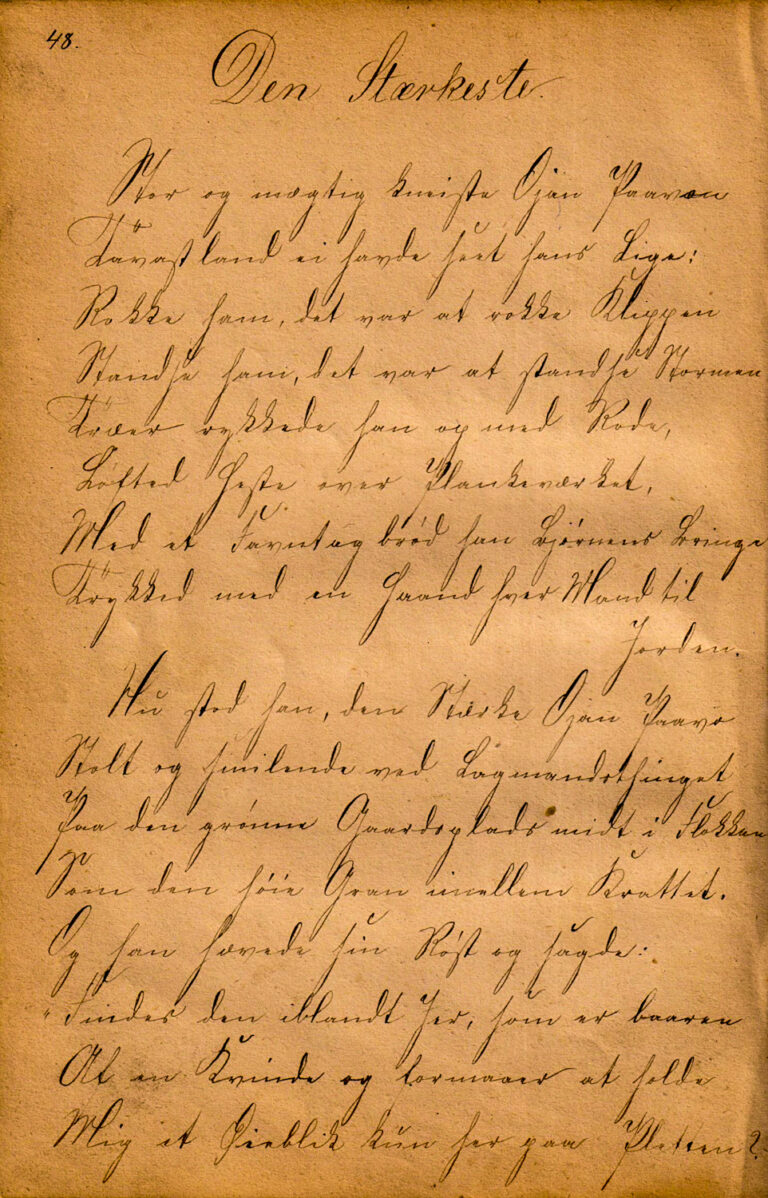 48.
Den Stærkeste.
Stor og mægtig kneiste Ojan Paavon
Tavastland ei havde seet hans Lige:
Rokke ham, det var at rokke Klippen
Standse ham, det var at standse Stormen
Træer rykkede han op med Rode,
Løfted Heste over Plankeværket,
Med et Favntag brød han Bjørnens Bringe
Trykked med en Haand hver Mand til
Jorden.
Nu stod han, den Stærke Ojan Paavo
Stolt og smilende ved Lagmandsthinget
Paa den grønne Gaardsplads midt i Flokken
Som den høie Gran imellem Krattet.
Og han hævede sin Røst og sagde:
"Findes den iblandt Jer, som er baaren
Af en Kvinde og formaaer at holde
Mig et Øieblik kun her paa Pletten?